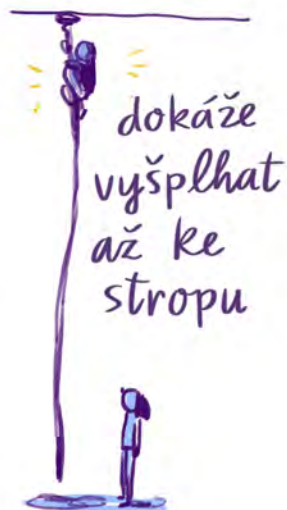 dokáže
vyšplhat
až ke
stropu